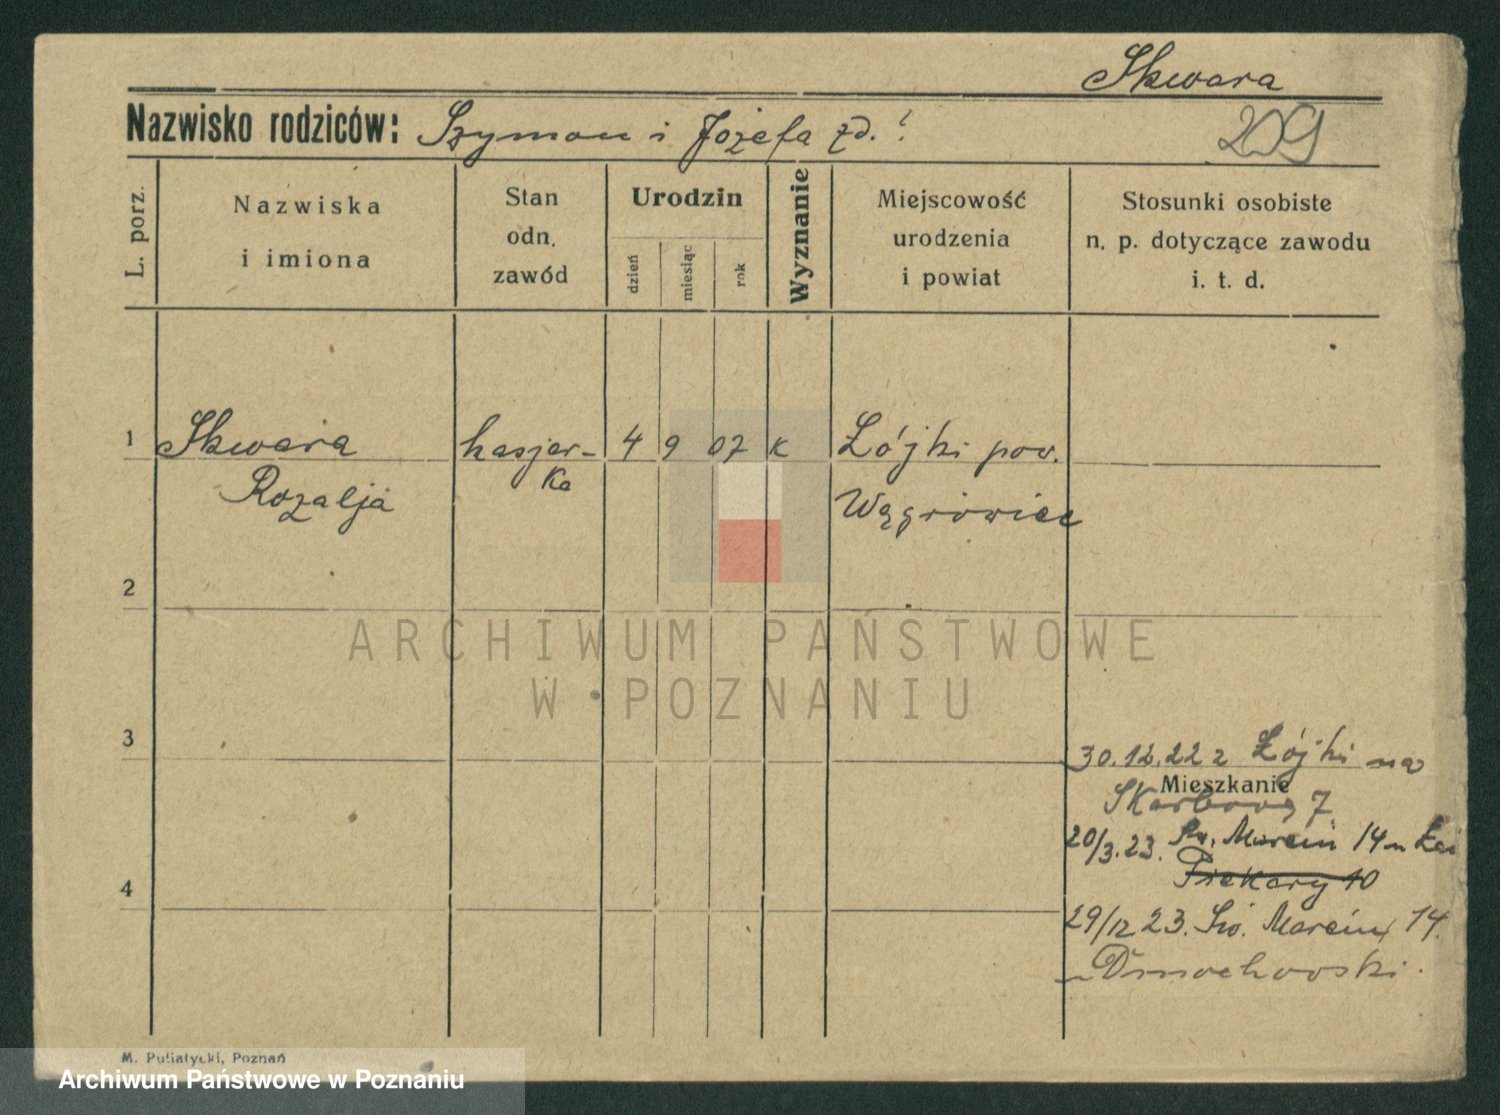 Skwara
Nazwisko rodziców: Szymon i Józefa zd. ?
209
L. porz.
Nazwiska
i imiona
Stan
odn.
zawód
Urodzin
dzień
miesiąc
rok
Wyznanie
Miejscowość
urodzenia
i powiat
Stosunki osobiste
n. p. dotyczące zawodu
i. t. d.
1 Skwara kasjer- 4 9 07 K Łójki pow.
Rozalja ka Wągrówiec
2
ARCHIWUM PAŃSTWOWE
W POZNANIU
3
30.12.22 z Łójki na
Mieszkanie
Skarbowa 7
20/3.23. Św. Marcin 14
Piekary 10
4
29/12 23. Św. Marcin 14.
Dmochowski.
M. Putiatycki, Poznań
Archiwum Państwowe w Poznaniu